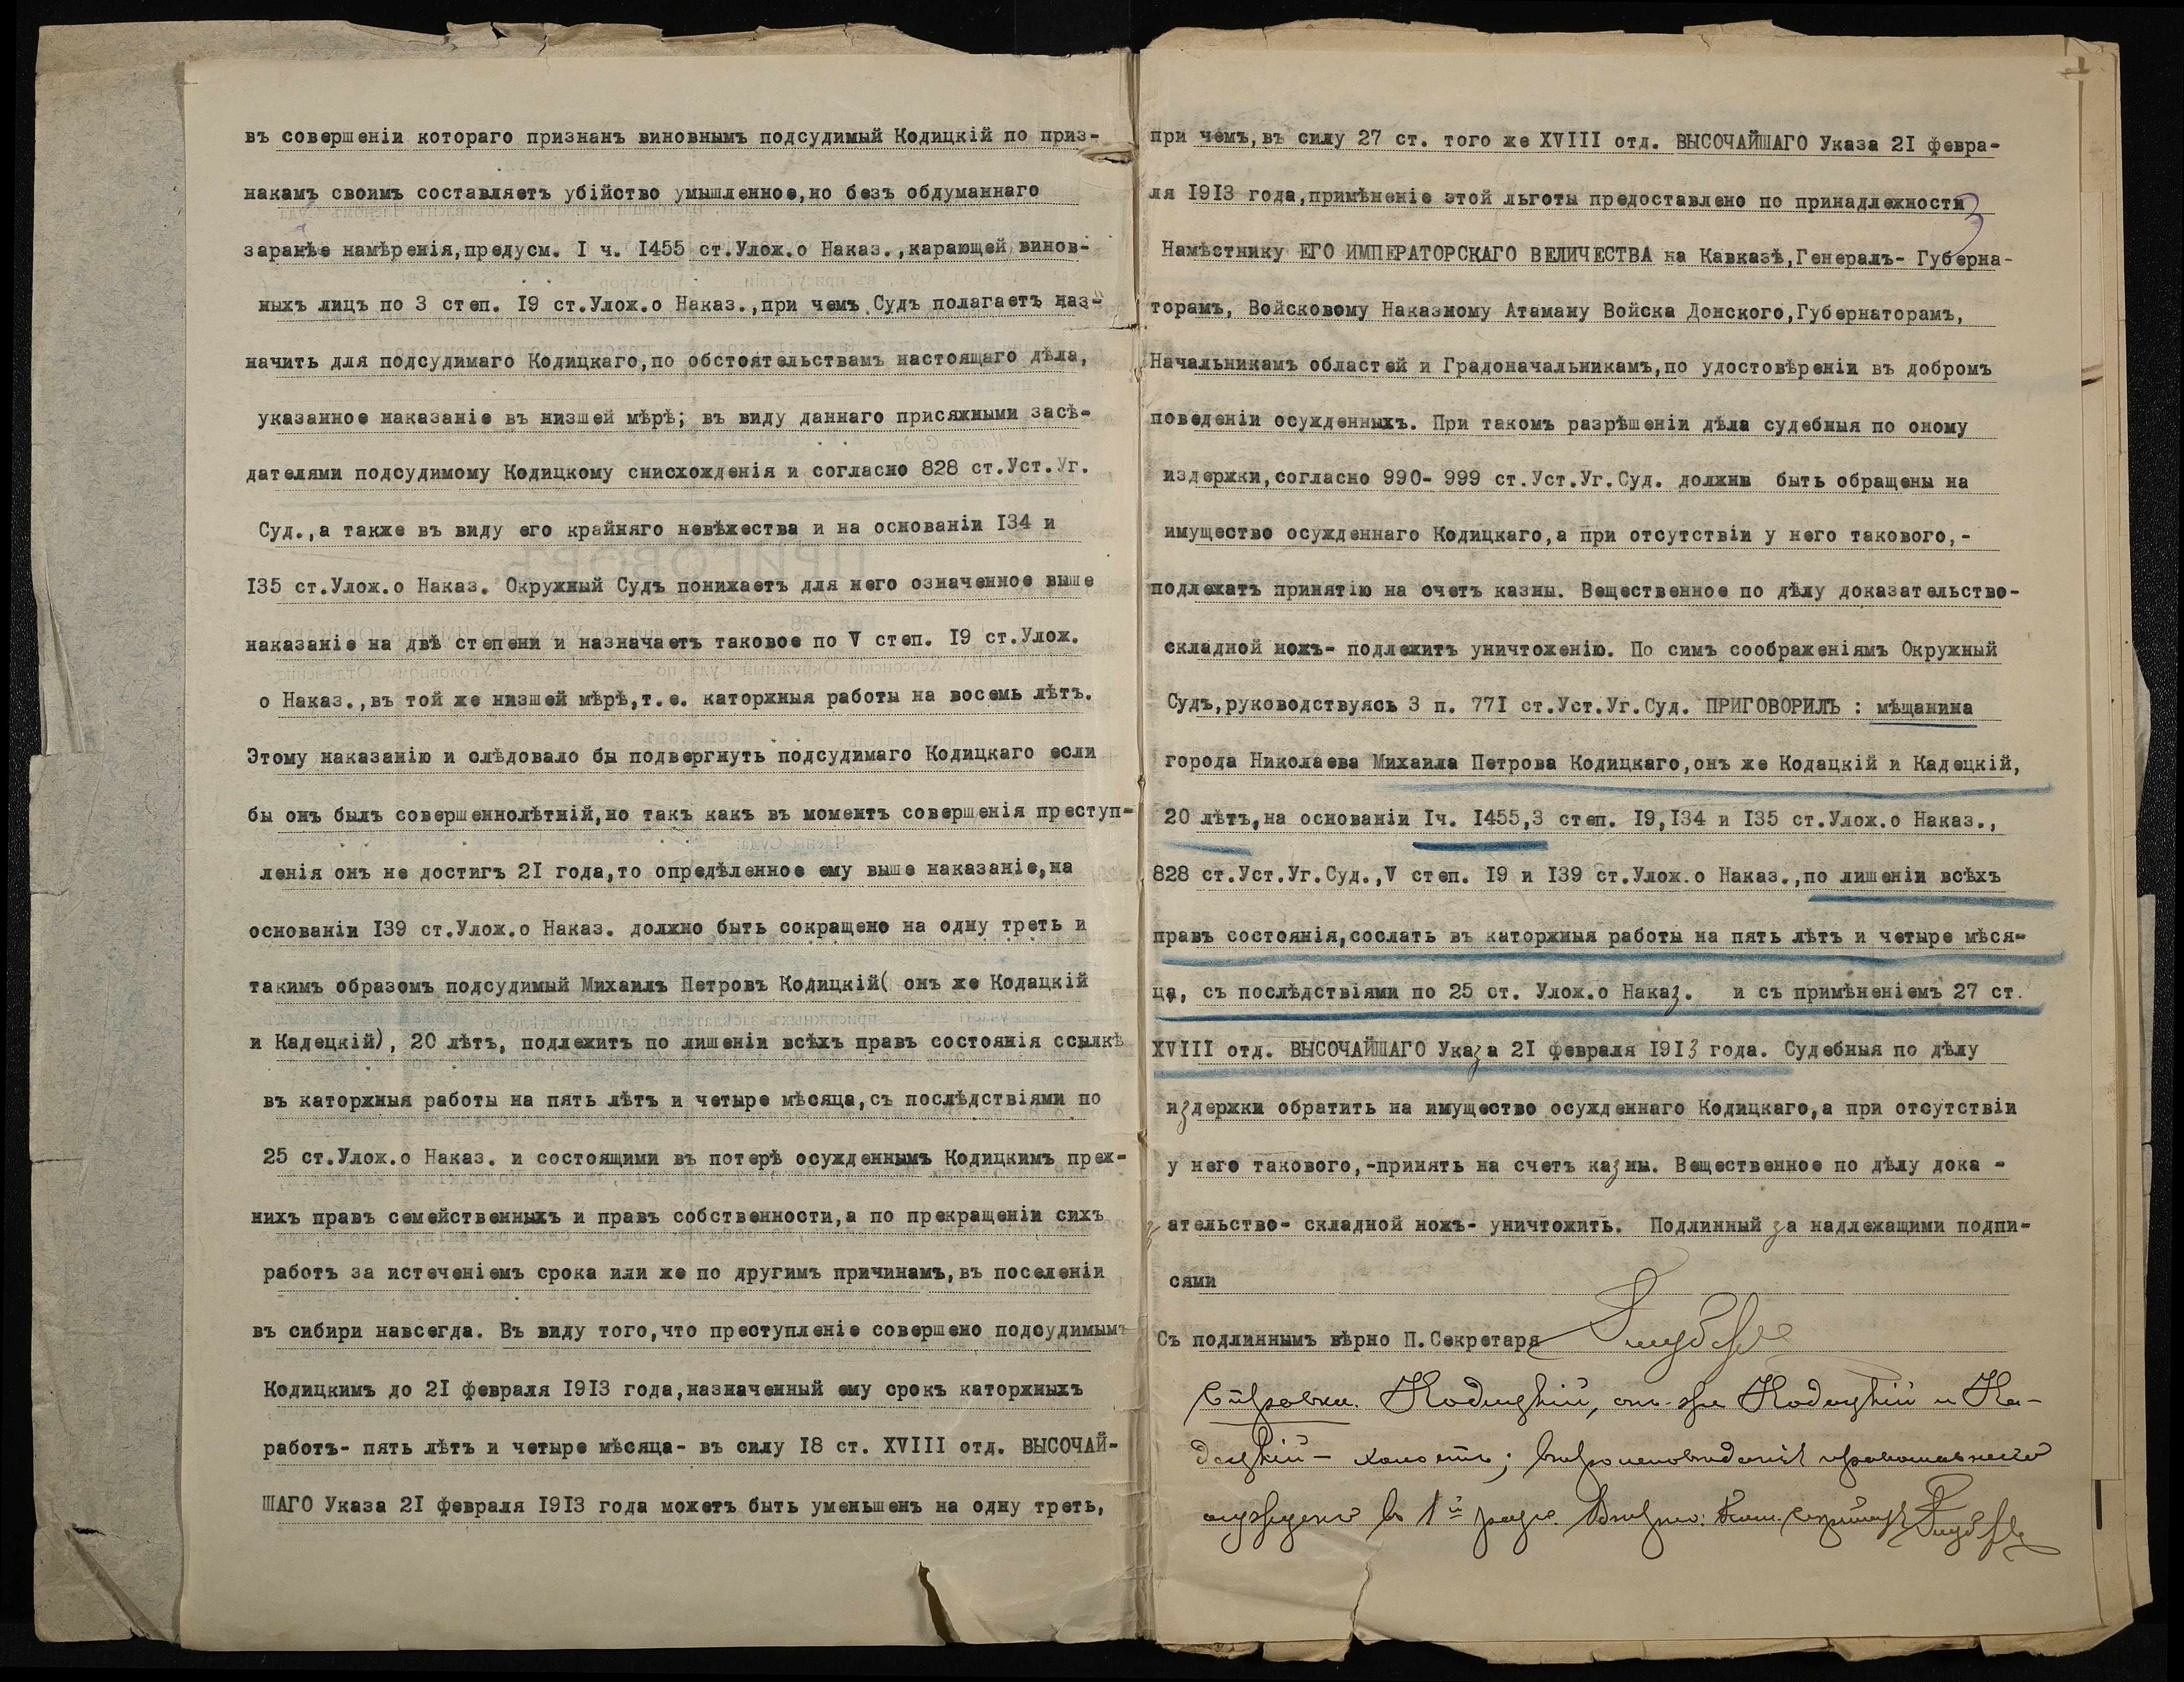 въ совершеніи котораго признанъ виновнымъ подсудимый Кодицкій по приз-
накамъ своимъ составляетъ убійство умышленное,но безъ обдуманнаго
заранѣе намѣренія,предусм. I ч. I455 ст.Улож.о Наказ.,карающей винов-
ныхъ лицъ по 3 степ. I9 ст.Улож.о Наказ.,при чемъ Судъ полагаетъ наз-
начить для подсудимаго Кодицкаго,по обстоятельствамъ настоящаго дѣла,
указанное наказаніе въ низшей мѣрѣ; въ виду даннаго присяжными засѣ-
дателями подсудимому Кодицкому снисхожденія и согласно 828 ст.Уст.Уг.
Суд.,а также въ виду его крайняго невѣжества и на основаніи I34 и
I35 ст.Улож.о Наказ. Окружный Судъ понижаетъ для него означенное выше
наказаніе на двѣ степени и назначаетъ таковое по V степ. I9 ст.Улож.
о Наказ.,въ той же низшей мѣрѣ,т.е. каторжныя работы на восемь лѣтъ.
Этому наказанію и слѣдовало бы подвергнуть подсудимаго Кодицкаго если
бы онъ былъ совершеннолѣтній,но такъ какъ въ моментъ совершенія преступ-
ленія онъ не достигъ 2I года,то опредѣленное ему выше наказаніе,на
основаніи I39 ст.Улож.о Наказ. должно быть сокращено на одну треть и
такимъ образомъ подсудимый Михаилъ Петровъ Кодицкій( онъ же Кодацкій
и Кадецкій), 20 лѣтъ, подлежитъ по лишеніи всѣхъ правъ состоянія ссылкѣ
въ каторжныя работы на пять лѣтъ и четыре мѣсяца,съ послѣдствіями по
25 ст.Улож.о Наказ. и состоящими въ потерѣ осужденнымъ Кодицкимъ преж-
нихъ правъ семейственныхъ и правъ собственности,а по прекращеніи сихъ
работъ за истеченіемъ срока или же по другимъ причинамъ,въ поселеніи
въ сибири навсегда. Въ виду того,что преступленіе совершено подсудимымъ
Кодицкимъ до 2I февраля I9I3 года,назначенный ему срокъ каторжныхъ
работъ- пять лѣтъ и четыре мѣсяца- въ силу I8 ст. XVIII отд. ВЫСОЧАЙ-
ШАГО Указа 2I февраля I9I3 года можетъ быть уменьшенъ на одну треть,
при чемъ,въ силу 27 ст. того же XVIII отд. ВЫСОЧАЙШАГО Указа 2I февра-
ля I9I3 года,примѣненіе этой льготы предоставлено по принадлежности
3
Намѣстнику ЕГО ИМПЕРАТОРСКАГО ВЕЛИЧЕСТВА на Кавказѣ,Генералъ- Губерна-
торамъ, Войсковому Наказному Атаману Войска Донского,Губернаторамъ,
Начальникамъ областей и Градоначальникамъ,по удостовѣреніи въ добромъ
поведеніи осужденныхъ. При такомъ разрѣшеніи дѣла судебныя по оному
издержки,согласно 990- 999 ст.Уст.Уг.Суд. должны быть обращены на
имущество осужденнаго Кодицкаго,а при отсутствіи у него такового,-
подлежатъ принятію на счетъ казны. Вещественное по дѣлу доказательство-
складной ножъ- подлежитъ уничтоженію. По симъ соображеніямъ Окружный
Судъ,руководствуясь 3 п. 77I ст.Уст.Уг.Суд. ПРИГОВОРИЛЪ : мѣщанина
города Николаева Михаила Петрова Кодицкаго,онъ же Кодацкій и Кадецкій,
20 лѣтъ,на основаніи Iч. I455,3 степ. I9,I34 и I35 ст.Улож.о Наказ.,
828 ст.Уст.Уг.Суд.,V степ. I9 и I39 ст.Улож.о Наказ.,по лишеніи всѣхъ
правъ состоянія,сослать въ каторжныя работы на пять лѣтъ и четыре мѣся-
ца, съ послѣдствіями по 25 ст. Улож.о Наказ. и съ примѣненіемъ 27 ст.
XVIII отд. ВЫСОЧАЙШАГО Указа 2I февраля I9I3 года. Судебныя по дѣлу
издержки обратить на имущество осужденнаго Кодицкаго,а при отсутствіи
у него такового,-принять на счетъ казны. Вещественное по дѣлу дока -
зательство- складной ножъ- уничтожить. Подлинный за надлежащими подпи-
сями
Съ подлиннымъ вѣрно П.Секретаря
Справка. Кодицкій, онъ же Кодацкій и Ка-
децкій - холостъ; вѣроисповѣданія православнаго
осужденъ въ 1й разъ. Вѣрно: Пом. Секретаря